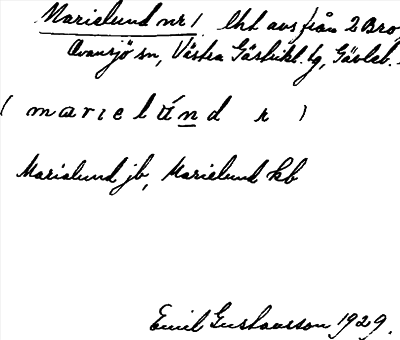 Marielund nr 1 lht avs från 2 Bro,
Ovansjö sn, Västra Gästrikl. tg, Gävleb.
( marielúnd r )
Marielund jb, Marielund kb
Emil Gustavsson 1929.